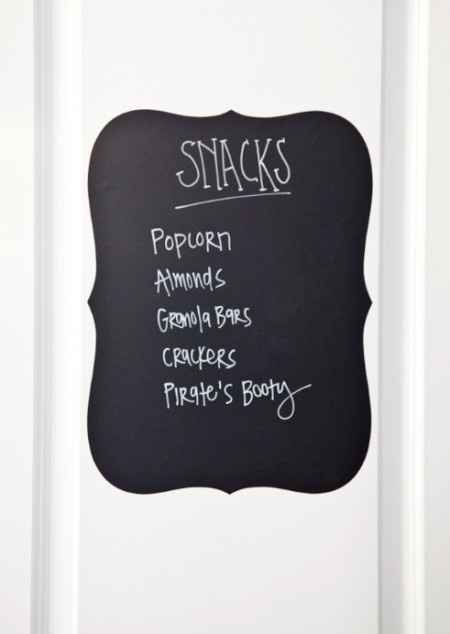 SNACKS
POPCORN
Almonds
Granola Bars
Crackers
Pirate's Booty